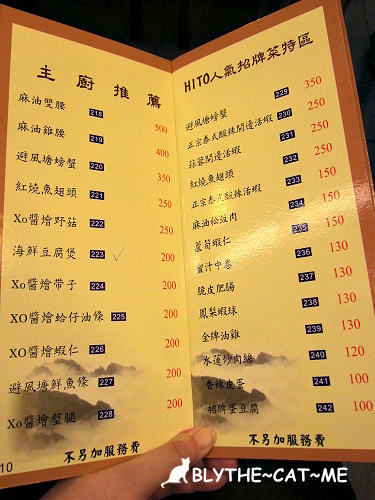 主廚推薦
麻油雙腰 218 500
麻油雞腰 219 400
避風塘螃蟹 220 350
紅燒魚翅頭 221 250
Xo醬燴野菇 222 200
海鮮豆腐煲 223 200
Xo醬燴帶子 224 200
XO醬燴蛤仔油條 225 200
XO醬燴蝦仁 226 200
避風塘鮮魚條 227 200
Xo醬燴蟹腿 228 200
不另加服務費
10
HITO人氣招牌菜特區
避風塘螃蟹 229 350
正宗泰式酸辣開邊活蝦 230 250
蒜蓉開邊活蝦 231 250
紅燒魚翅頭 232 250
正宗泰式酸辣活蝦 233 250
麻油松阪肉 234 150
蘆筍蝦仁 235 150
蜜汁中卷 236 130
脆皮肥腸 237 130
鳳梨蝦球 238 130
金牌油雞 239 130
水蓮炒肉絲 240 120
香辣皮蛋 241 100
招牌蛋豆腐 242 100
不另加服務費
BLYTHE~CAT~ME